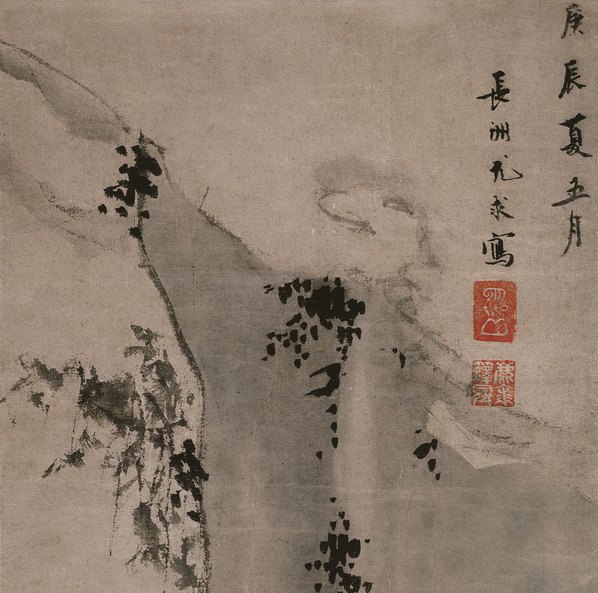 庚辰夏五月
長洲尤求寫